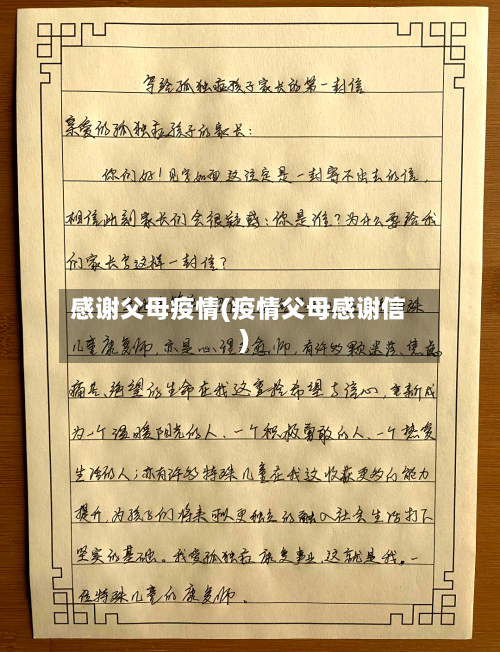 写给孤独症孩子家长的第一封信
亲爱的孤独症孩子的家长：
你们好！见字如面，这注定是一封寄不出去的信，
相信此刻家长们会很疑惑：你是谁？为什么要给我
们家长写这样一封信？
感谢父母疫情(疫情父母感谢信
)
殊
儿童康复师，亦是心理 师，有许多颗迷茫、焦虑、
痛苦、绝望的生命在我这里拾希望与信心，重新成
为一个温暖阳光的人、一个积极勇敢的人、一个热爱
生活的人；亦有许多特殊儿童在我这收获更多的能力
提升，为孩子们将来 更独立的融入社会生活打下
坚实的基础。我爱孤独症康复事业，这就是我，一
位特殊儿童的康复师。